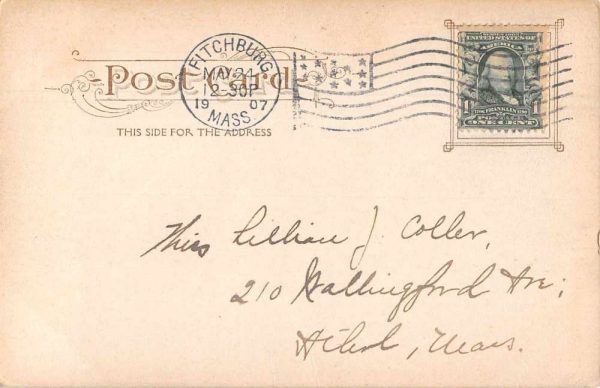 Post Card
THIS SIDE FOR THE ADDRESS
FITCHBURG
MAY 24
12-30P
1907
MASS.
UNITED STATES OF
AMERICA
1 FRANKLIN 1
ONE CENT
Miss Lillian J. Coller,
210 Wallingford Ave;
Athol, Mass.